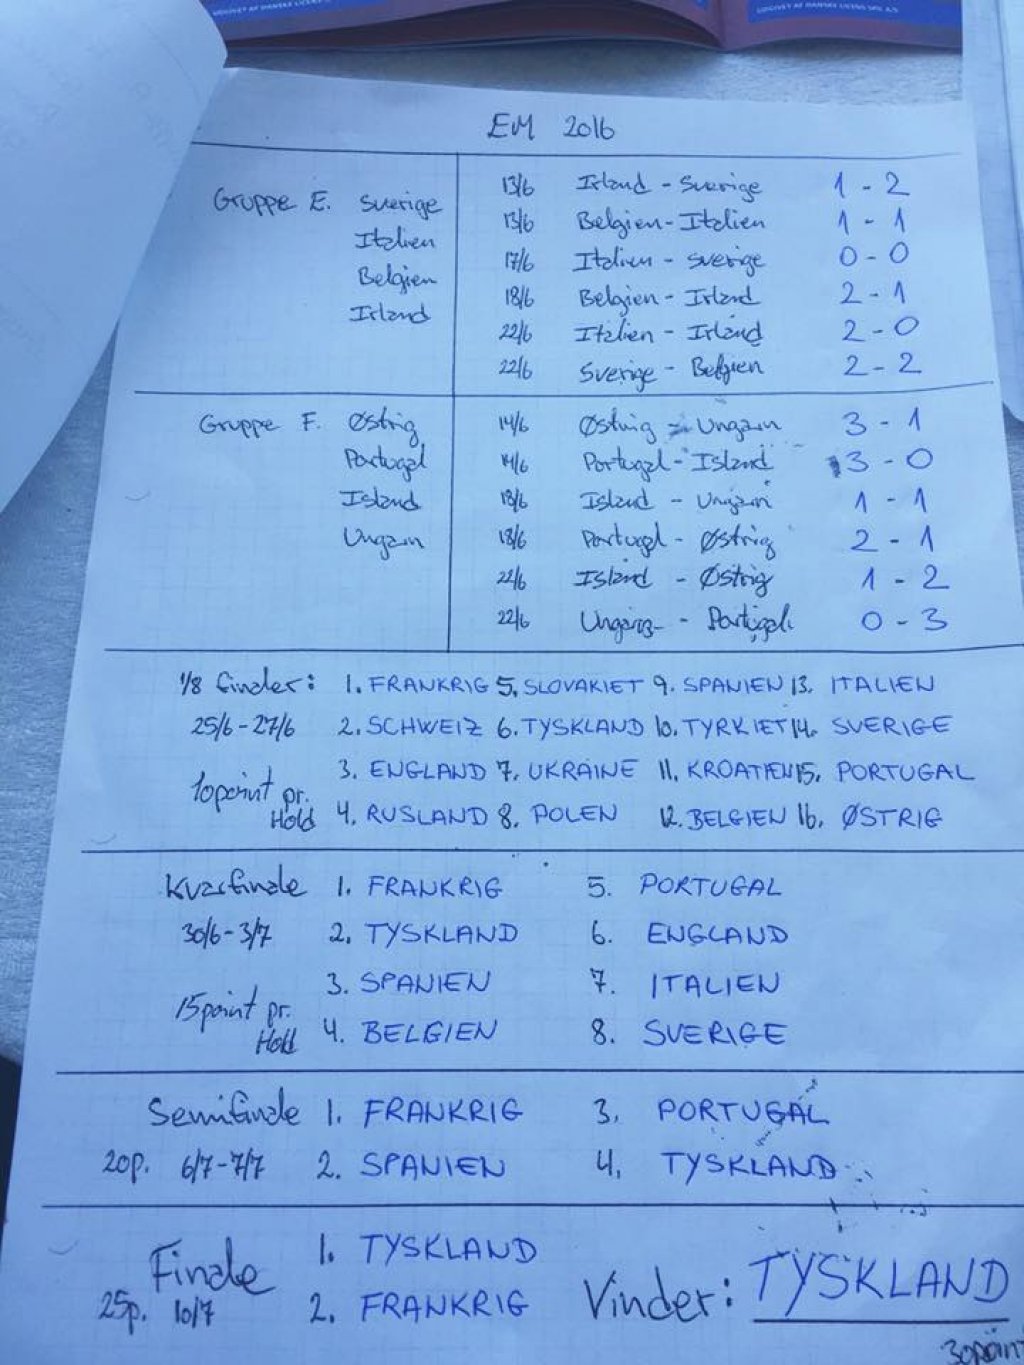 UDGIVET AF DANSKE LICENS SPIL A/S
EM 2016
Gruppe E. Sverige 13/6 Irland - Sverige 1 - 2
Italien 13/6 Belgien - Italien 1 - 1
Belgien 17/6 Italien - Sverige 0 - 0
Irland 18/6 Belgien - Irland 2 - 1
22/6 Italien - Irland 2 - 0
22/6 Sverige - Belgien 2 - 2
Gruppe F. Østrig 14/6 Østrig - Ungarn 3 - 1
Portugal 14/6 Portugal - Island 3 - 0
Island 18/6 Island - Ungarn 1 - 1
Ungarn 18/6 Portugal - Østrig 2 - 1
22/6 Island - Østrig 1 - 2
22/6 Ungarn - Portugal 0 - 3
1/8 finaler: 1. FRANKRIG 5. SLOVAKIET 9. SPANIEN 13. ITALIEN
25/6 - 27/6 2. SCHWEIZ 6. TYSKLAND 10. TYRKIET 14. SVERIGE
10point pr. Hold 3. ENGLAND 7. UKRAINE 11. KROATIEN 15. PORTUGAL
4. RUSLAND 8. POLEN 12. BELGIEN 16. ØSTRIG
Kvartfinale 1. FRANKRIG 5. PORTUGAL
30/6 - 3/7 2. TYSKLAND 6. ENGLAND
15point pr. Hold 3. SPANIEN 7. ITALIEN
4. BELGIEN 8. SVERIGE
Semifinale 1. FRANKRIG 3. PORTUGAL
20p. 6/7 - 7/7 2. SPANIEN 4. TYSKLAND
Finale 1. TYSKLAND Vinder: TYSKLAND
25p. 10/7 2. FRANKRIG
30point